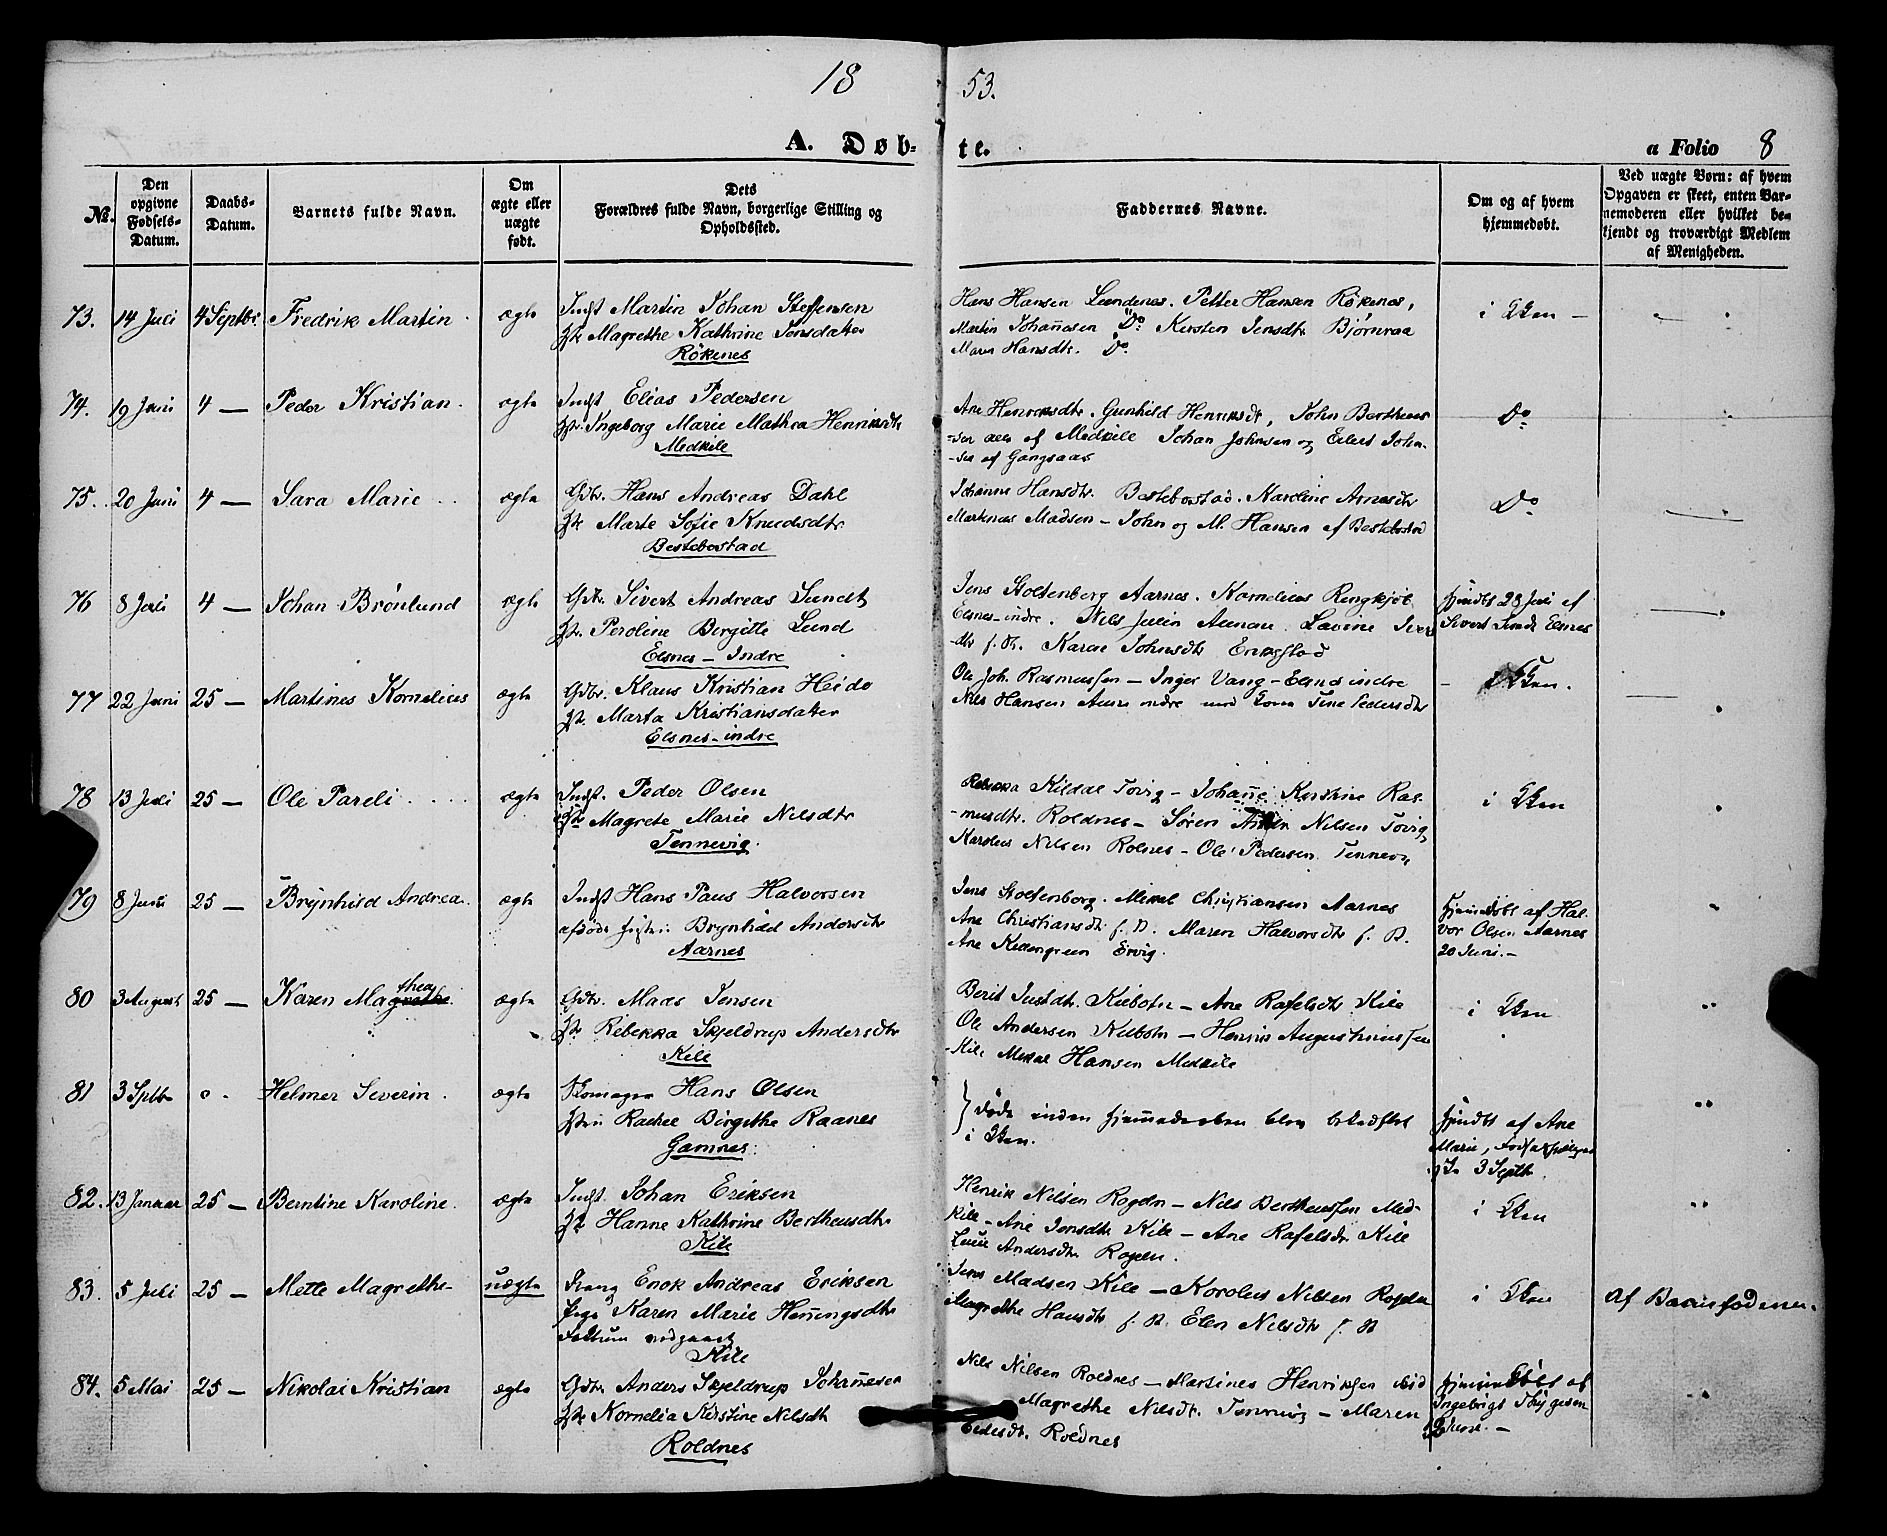 18 53.
A. Døb- te. a Folio 8
No.
Den opgivne Fødsels-Datum.
Daabs-Datum.
Barnets fulde Navn.
Om ægte eller uægte født.
Dets Forældres fulde Navn, borgerlige Stilling og Opholdssted.
Faddernes Navne.
Om og af hvem hjemmedøbt.
Ved uægte Børn: af hvem Opgaven er skeet, enten Bar-nemoderen eller hvilket be-kjendt og troværdigt Medlem af Menigheden.
73. 14 Juli 4 Septbr. Fredrik Martin ægte Indst Martin Johan Steffensen
Magrethe Kathrine Jensdatter
Rökenes
Hans Hansen Lundenes. Petter Hansen Rökenes,
Martin Johannesen Do. Kersten Jensdtr Bjørnraa
Maren Hansdtr. Do.
i Kken —
74. 19 Juni 4 — Peder Kristian. ægte Indst Elias Pedersen
Ingeborg Marie Mathea Henriksdtr
Medkile
Ane Henriksdtr. Gunhild Henriksdt, John Bertheus
-sen alle af Medkile Johan Johnsen og Eilert John-
-sen af Gangsaas
Do
75. 20 Juni 4 — Sara Marie ægte Gdbr. Hans Andreas Dahl
Marte Sofie Knudsdtr
Bestebostad
Johanne Hansdtr. Bestebostad. Karoline Arnesdtr
Madsen — John og M. Hansen af Bestebostad
Do
76 8 Juli 4 — Johan Brönlund ægte Gdbr. Sivert Andreas Sundt
Peroline Birgitte Lund
Elsnes – Indre
Jens Stoltenberg Aarnes. Kornelius Ringkjöb
Elsnes-indre. Nils Julin Aunau. Lavine Iver
-dtr f. St. Karen Johnsdtr Erikstad
hjmdbt 28 Juli af
Sivert Sundt Elsnes
77 22 Juni 25 — Martines Kornelius ægte Gdbr. Klaus Kristian Heide
Marta Kristiansdatter
Elsnes-indre
Ole Joh. Rasmussen — Inger Vang — Elsnes indre
Nils Hansen Aune indre med Kone Tine Pedersdtr
i Kken.
78 13 Juli 25 — Ole Pareli ægte Indst. Peder Olsen
Magrete Marie Nilsdtr
Tennevig.
Rebekka Kildal Tovig — Johanne Kirstine Ras-
-musdtr. Roldnes — Søren Nilsen Tovig
Karolus Nilsen Rolnes — Ole Pedersen Tennevig
i Kken
79 8 Juni 25 — Brynhild Andrea. ægte Indst Hans Paus Halvorsen
afdøde Hustru Brynhild Andersdtr
Aarnes
Jens Stoltenborg. Mikal Christiansen Aarnes
Ane Christiansdt f. St. Maren Halvorsdtr f. St.
Ane Kildengreen Ervig.
hjemmedøbt af Hal-
vor Olsen Aarnes
20 Juni. —
80 3 August 25 — Karen Magrethe thea ægte Gdbr. Mares Jensen
Rebekka Skjeldrup Andersdtr
Kile
Berit Justdt. Kilbotn — Ane Rafelsdtr Kile
Ole Andersen Kilbotn — Henrik Augustinussen
-Kile Mikal Hansen Medkile
i Kken
81 3 Septb Helmer Severin. ægte Skomager Hans Olsen
Rachel Birgithe Raanes
Gamnes.
døde inden hjemmedaaben blev bekræftet
i Kken.
hjmdbt af Ane
Marie,
3 Septb.
82. 13 Januar 25 — Berntine Karoline. ægte Indst. Johan Eriksen
Hanne Kathrine Bertheusdtr
Kile
Henrik Nilsen Rogdn — Nils Bertheussen Med-
kile — Ane Jensdtr Kile — Ane Rafelsdtr Kile
Andersdtr Rogdn.
i Kken
83. 5 Juli 25 — Mette Magrethe- uægte Enok Andreas Eriksen
Pige Karen Marie Henningsdtr
Kile
Jens Madsen Kile — Karolus Nilsen Rogdn
Magrethe Hansdtr f. St. Elen Nilsdtr f. St
i Kken
Af Barnefaderen.
84. 5 Mai 25 — Nikolai Kristian ægte Gdbr Anders Skjeldrup Johannesen
Kornelia Kirstine Nilsdt
Roldnes
Nils Nilsen Roldnes — Martines Henriksen
Magrethe Nilsdt. Tennevig — Maren
Roldnes
hjemmedøbt af
Ingebrigt Thygesen